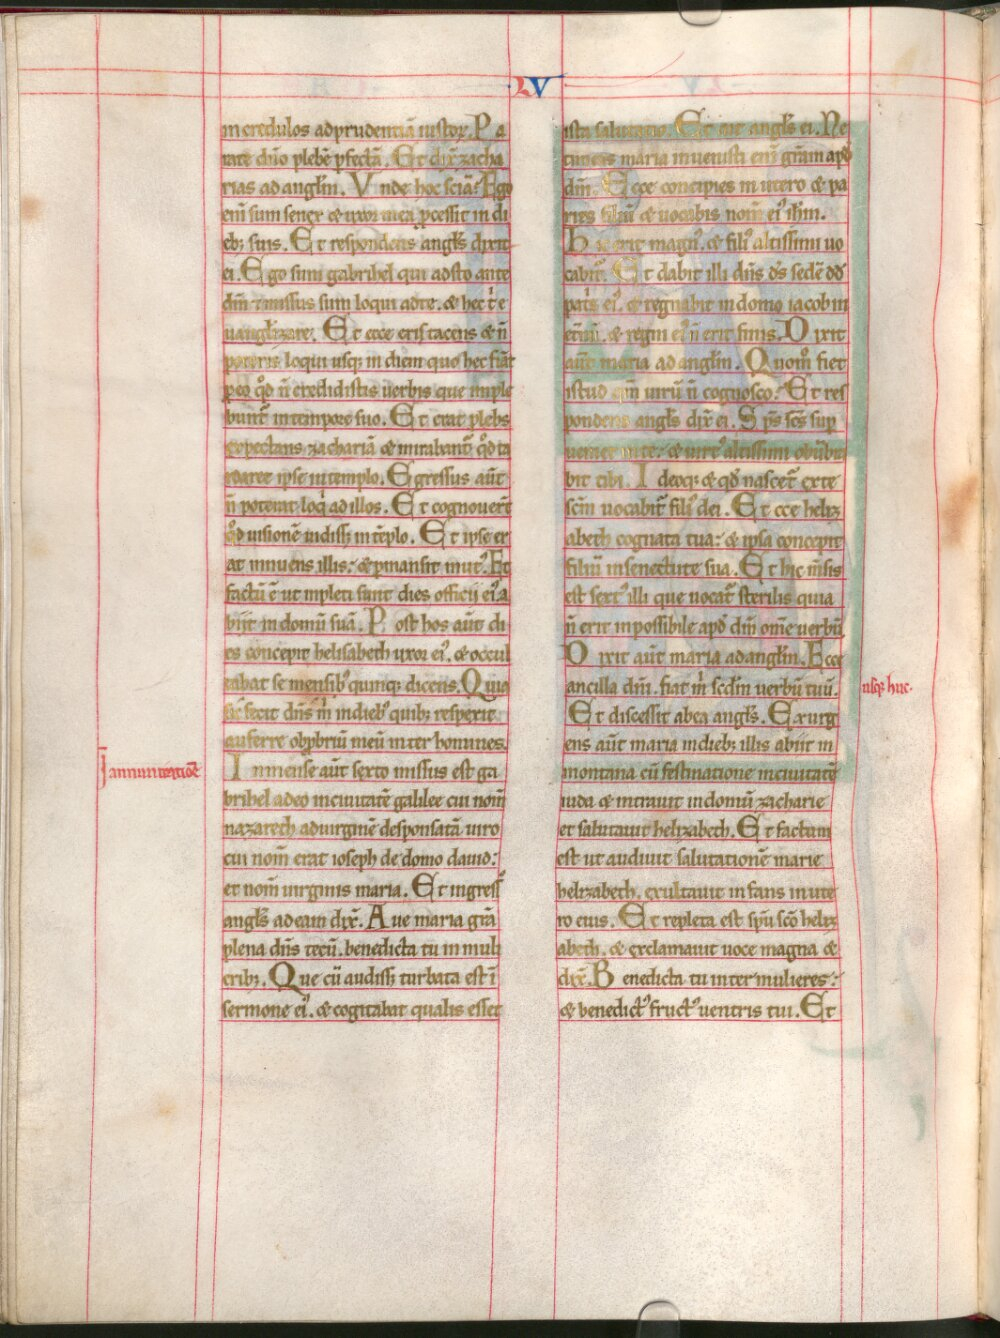 LV
in credulos ad prudentiā iustoꝝ. Pa
rare dn̄o plebē ꝑfectā. Et dix̄ zacha
rias ad angl̄m. Vnde hoc sciā? Ego
eni sum senex ⁊ uxor mea ꝓcessit in di
ebꝫ suis. Et respondens angl̄s dixit
ei. Ego sum gabrihel qui adsto ante
dm̄ ⁊ missus sum loqui ad te. ⁊ hec t̄ e
uangl̄izare. Et ecce eris tacens ⁊ n̄
poteris loqui usqꝫ in diem quo hec fiāt
ꝑ eo qd̄ n̄ credidistis uerbis que imple
bunt̄ in tempore suo. Et erat plebs
expectans zachariā ⁊ mirabant̄ qd̄ ta
rdaret ipse in templo. Egressus aūt
n̄ poterat loqͥ ad illos. Et cognouer̄t
qd̄ uisionē uidiss̄ in tēplo. Et ipse er
at innuens illis: ⁊ ꝑmansit mutꝰ. Et
factū ē ut inpleti sunt dies officij eiꝰ a
bijt in domū suā. Post hos aūt di
es concepit helisabeth uxor eiꝰ. ⁊ occul
tabat se mensibꝰ quinqꝫ dicens. Quia
sic fecit dn̄s m̄ in diebꝰ quibꝫ respexit
auferre obprbriū meū inter homines.
In annuntiatiōe
In mense aūt sexto missus est ga
brihel a deo in ciuitatē galilee cui nom̄
nazareth ad uirginē desponsatā uiro
cui nom̄ erat ioseph de domo dauid:
et nom̄ uirginis maria. Et ingressꝰ
angl̄s ad eam dix̄. Aue maria grā
plena dn̄s tecū. benedicta tu in muli
eribꝫ. Que cū audiss̄ turbata est ī
sermone eiꝰ. ⁊ cogitabat qualis esset
ista salutatio. Et ait angl̄s ei. Ne
timeas maria inuenisti eni gr̄am apd̄
dm̄. Ecce concipies in utero ⁊ pa
ries filiū ⁊ uocabis nom̄ eiꝰ ih̄m.
Hic erit magnꝰ. ⁊ filꝰ altissimi uo
cabit̄. Et dabit illi dn̄s ds̄ sedē dd̄
patͥs eiꝰ. ⁊ regnabit in domo iacob in
et̄nū. ⁊ regni eiꝰ n̄ erit finis. Dixit
aūt maria ad angl̄m. Quom̄ fiet
istud qm̄ uirū n̄ cognosco? Et res
pondens angl̄s dix̄ ei. Sps̄ scs̄ suꝑ
ueniet in te: ⁊ uirtꝰ altissimi obūbra
bit tibi. Ideoqꝫ ⁊ qd̄ nascet̄ ex te
scm̄ uocabit̄ filꝰ dei. Et cce heliz
abeth cognata tua: ⁊ ipsa concepit
filiū in senectute sua. Et hic m̄sis
est sextꝰ illi que uocat̄ sterilis quia
n̄ erit inpossibile apd̄ dm̄ ome uerbū
Dixit aūt maria ad angl̄m. Ecce
ancilla dn̄i. fiat m̄ scdm̄ uerbū tuū.
usqꝫ huc.
Et discessit ab ea angl̄s. Exurg
ens aūt maria in diebꝫ illis abiit in
montana cū festinatione in ciuitatē
iuda ⁊ intrauit in domū zacharie
et salutauit helizabeth. Et factum
est ut audiuit salutationē marie
helizabeth. exultauit infans in ute
ro eius. Et repleta est spū scō heliz
abeth. ⁊ exclamauit uoce magna ⁊
dix̄. Benedicta tu inter mulieres:
⁊ benedictꝰ fructꝰ uentris tui. Et